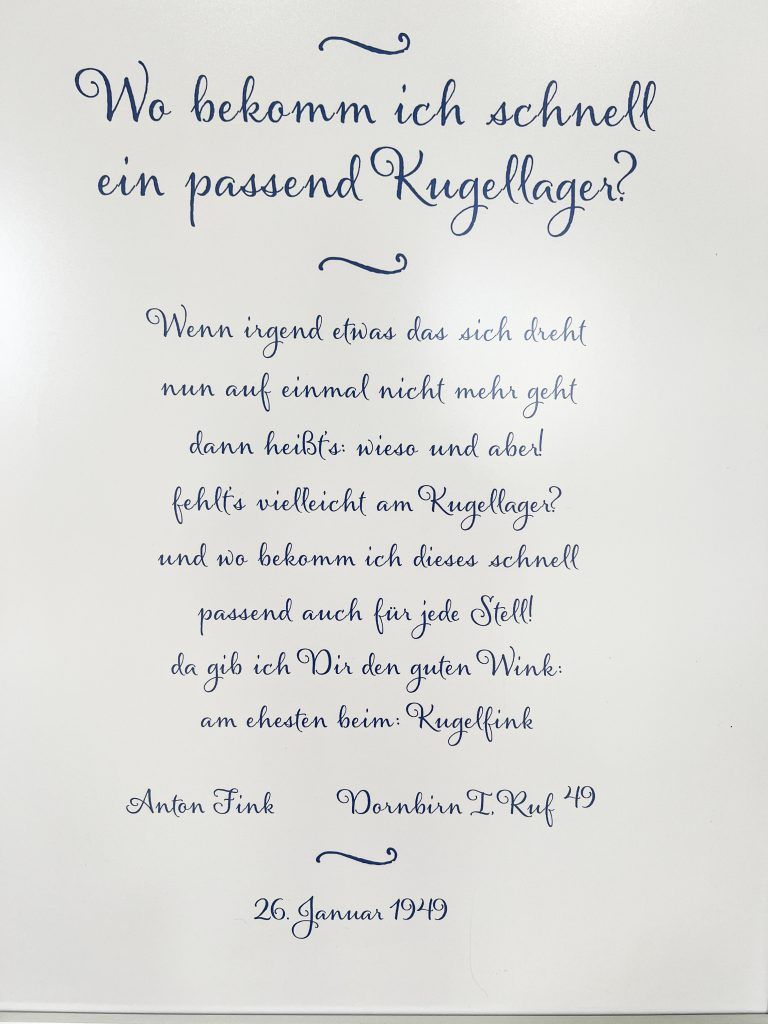 Wo bekomm ich schnell
ein passend Kugellager?
Wenn irgend etwas das sich dreht
nun auf einmal nicht mehr geht
dann heißt's: wieso und aber!
fehlt's vielleicht am Kugellager?
und wo bekomm ich dieses schnell
passend auch für jede Stell!
da gib ich Dir den guten Wink:
am ehesten beim: Kugelfink
Anton Fink Dornbirn I, Ruf 49
26. Januar 1949